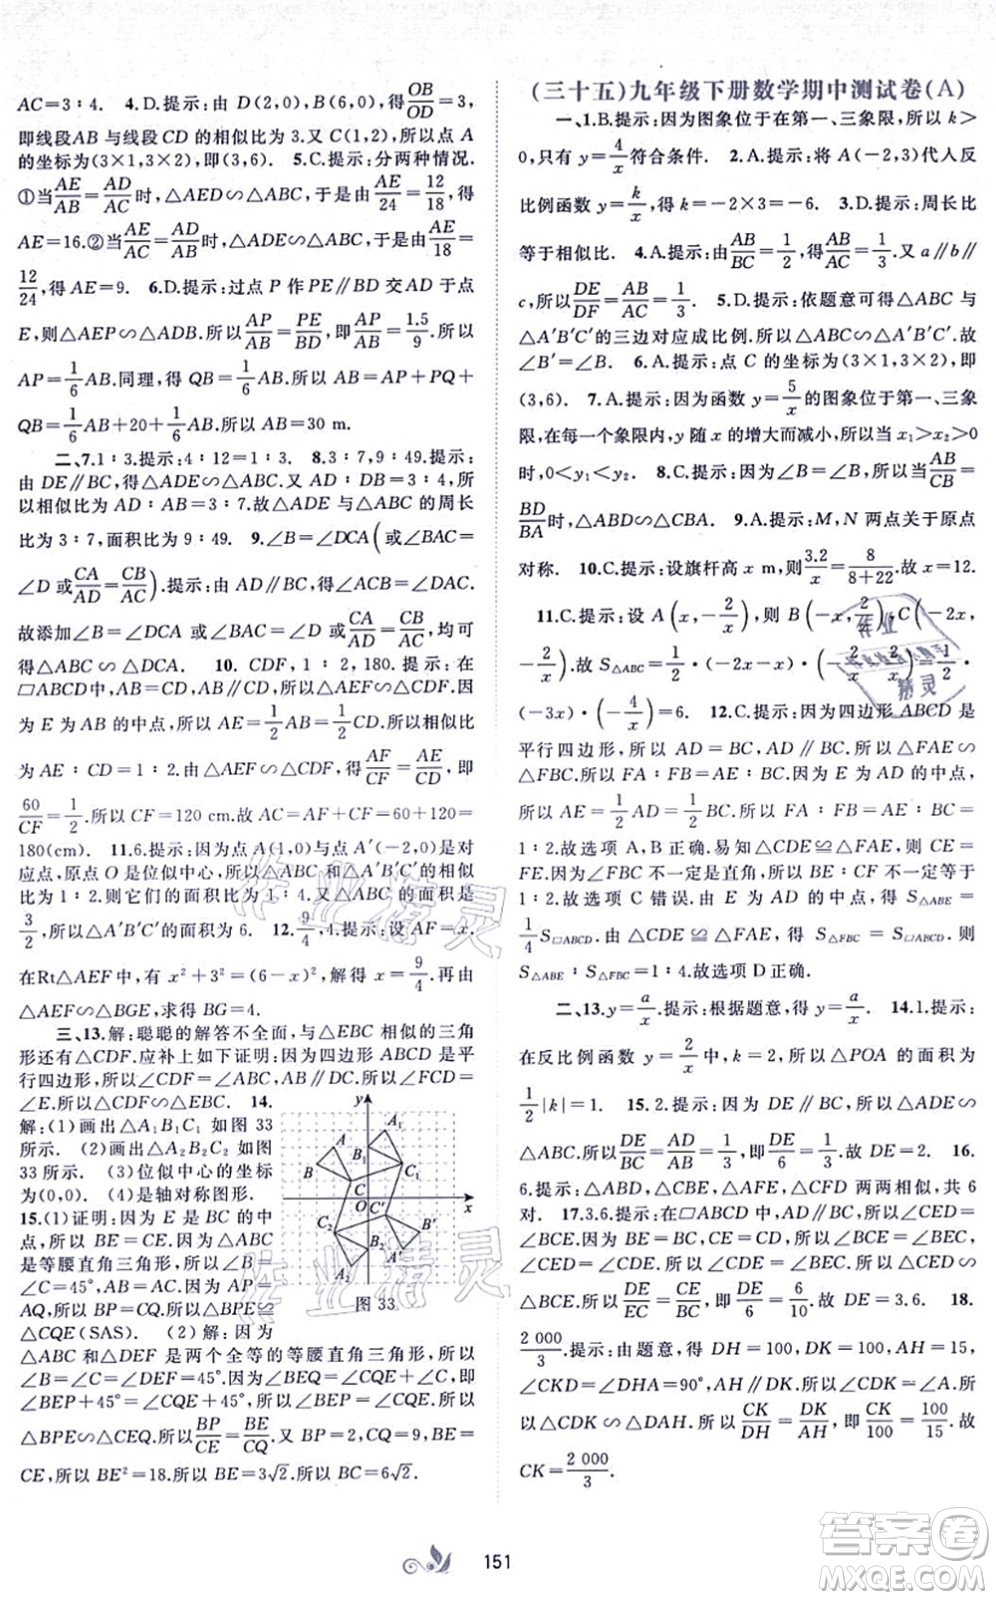 AC=3∶4. 4.D.提示:由 D(2,0),B(6,0)得OB/OD=3,
即线段AB 与线段CD 的相似比为 3.又 C(1,2),所以点 A
的坐标为(3×1,3×2),即(3,6). 5.C.提示:分两种情况.
①当AE/AB=AD/AC时,△AED∽△ABC,于是由AE/24=12/18,得
AE=16.②当AE/AC=AD/AB时,△ADE∽△ABC,于是由AE/18=
12/24,得 AE=9. 6.D.提示:过点 P 作 PE∥BD 交 AD 于点
E,则△AEP∽△ADB.所以AP/AB=PE/BD,即AP/AB=1.5/9.所以
AP=1/6AB.同理,得 QB=1/6AB.所以 AB=AP+PQ+
QB=1/6AB+20+1/6AB.所以 AB=30 m.
二、7.1∶3.提示:4∶12=1∶3. 8.3∶7,9∶49.提示:
由 DE∥BC,得△ADE∽△ABC.又 AD∶DB=3∶4,所
以相似比为 AD∶AB=3∶7.故△ADE 与△ABC 的周长
比为 3∶7,面积比为 9∶49. 9.∠B=∠DCA(或∠BAC=
∠D 或CA/AD=CB/AC).提示:由 AD∥BC,得∠ACB=∠DAC.
故添加∠B=∠DCA 或∠BAC=∠D 或CA/AD=CB/AC,均可
得△ABC∽△DCA. 10. CDF,1∶2,180.提示:在
▱ABCD中,AB∥CD,AB=CD,所以△AEF∽△CDF.因
为 E 为 AB 的中点,所以 AE=1/2AB=1/2CD.所以相似比
为 AE∶CD=1∶2.由△AEF∽△CDF,得AF/CF=AE/CD,即
60/CF=1/2.所以 CF=120 cm.故 AC=AF+CF=60+120=
180(cm). 11.6.提示:因为点 A(1,0)与点 A′(-2,0)是对
应点,原点 O 是位似中心,所以△ABC 和△A′B′C′的位似比
是 1∶2.则它们的面积比为 1∶4.又△ABC 的面积是
3/2,所以△A′B′C′的面积为 6. 12.9/4,4.提示:设 AF=x.
在Rt△AEF 中,有 x²+3²=(6-x)²,解得 x=9/4.再由
△AEF∽△BGE,求得 BG=4.
三、13.解:聪聪的解答不全面,与△EBC 相似的三角
形还有△CDF.应补上如下证明:因为四边形 ABCD 是平
行四边形,所以∠CDF=∠ABC,AB∥DC.所以∠FCD=
∠E.所以△CDF∽△EBC. 14.
解:(1)画出△A₁B₁C₁ 如图 33
所示. (2)画出△A₂B₂C₂ 如图
33 所示. (3)位似中心的坐标
为(0,0). (4)是轴对称图形.
15.(1)证明:因为 E 是 BC 的中
点,所以 BE=CE.因为△ABC
是等腰直角三角形,所以∠B=
∠C=45°,AB=AC.因为 AP=
AQ,所以 BP=CQ.所以△BPE≌
△CQE(SAS). (2)解:因为
y
A₁
A
B₁
B
C₁
C
O
C′
x
C₂
B′
B₂
A′
A₂
图 33
△ABC 和△DEF 是两个全等的等腰直角三角形,所以
∠B=∠C=∠DEF=45°.因为∠BEQ=∠EQC+∠C,即
∠BEP+45°=∠CQE+45°,所以∠BEP=∠CQE.所以
△BPE∽△CEQ.所以BP/CE=BE/CQ.又 BP=2,CQ=9,BE=
CE,所以 BE²=18.所以 BE=3√2.所以 BC=6√2.
(三十五)九年级下册数学期中测试卷(A)
一、1.B.提示:因为图象位于在第一、三象限,所以 k>
0,只有 y=4/x符合条件. 2.A.提示:将 A(-2,3)代人反
比例函数 y=k/x,得 k=-2×3=-6. 3.D.提示:周长比
等于相似比. 4.A.提示:由AB/BC=1/2,得AB/AC=1/3.又 a∥b∥
c,所以DE/DF=AB/AC=1/3. 5.D.提示:依题意可得△ABC 与
△A′B′C′的三边对应成比例.所以△ABC∽△A′B′C′.故
∠B′=∠B=60°. 6.A.提示:点 C 的坐标为(3×1,3×2),即
(3,6). 7.A.提示:因为函数 y=5/x的图象位于第一、三象
限,在每一个象限内,y 随 x 的增大而减小,所以当 x₁>x₂>0
时,0<y₁<y₂. 8.C.提示:因为∠B=∠B,所以当AB/CB=
BD/BA时,△ABD∽△CBA. 9.A.提示:M,N 两点关于原点
对称. 10.C.提示:设旗杆高 x m,则3.2/x=8/(8+22).故 x=12.
11.C.提示:设 A(x,-2/x),则 B(-x,2/x),C(-2x,
-2/x).故 S△ABC=1/2·(-2x)·(-2/x)
·(-3x)·(-4/x)=6. 12.C.提示:因为四边形 ABCD 是
平行四边形,所以 AD=BC,AD∥BC.所以△FAE∽
△FBC.所以 FA∶FB=AE∶BC.因为 E 为 AD 的中点,
所以 AE=1/2AD=1/2BC.所以 FA∶FB=AE∶BC=
1∶2.故选项A,B 正确.易知△CDE≌△FAE.所以 CE=
FE.因为∠FBC 不一定是直角,所以 BE,CE 不一定等于
1∶2.故选项 C 错误.因为 E 为 AD 的中点,所以 S△ABE=
1/4S▱ABCD.由△CDE≌△FAE,得 S△FBC=S▱ABCD.则
S△ABE∶S△FBC=1∶4.故选项 D 正确.
二、13.y=a/x.提示:根据题意,得 y=a/x. 14.1.提示:
在反比例函数 y=2/x中,k=2,所以△POA 的面积为
1/2|k|=1. 15.2.提示:因为 DE∥BC,所以△ADE∽
△ABC.所以DE/BC=AD/AB=1/3.因为BC=6,所以DE=2. 16.
6.提示:△ABC,△EDB,△AFE,△CFD 两两相似,共 6
对. 17.3.6.提示:在▱ABCD 中,AD∥BC,所以∠CED=
∠BCE.因为∠DCE=∠BEC,所以△DCE∽
△BCE.所以DE/EC=EC/BC,即DE/6=6/10.故 DE=3.6. 18.
2 000/3.提示:由题意,得 DH=100,DK=100,AH=15,
∠CKD=∠DHA=90°,∠CDK=∠A.所以
△CDK∽△DAH.所以CK/DH=DK/AH,即CK/100=100/15.故
CK=2 000/3.
151
答案圈
MXQE.COM
作业精灵